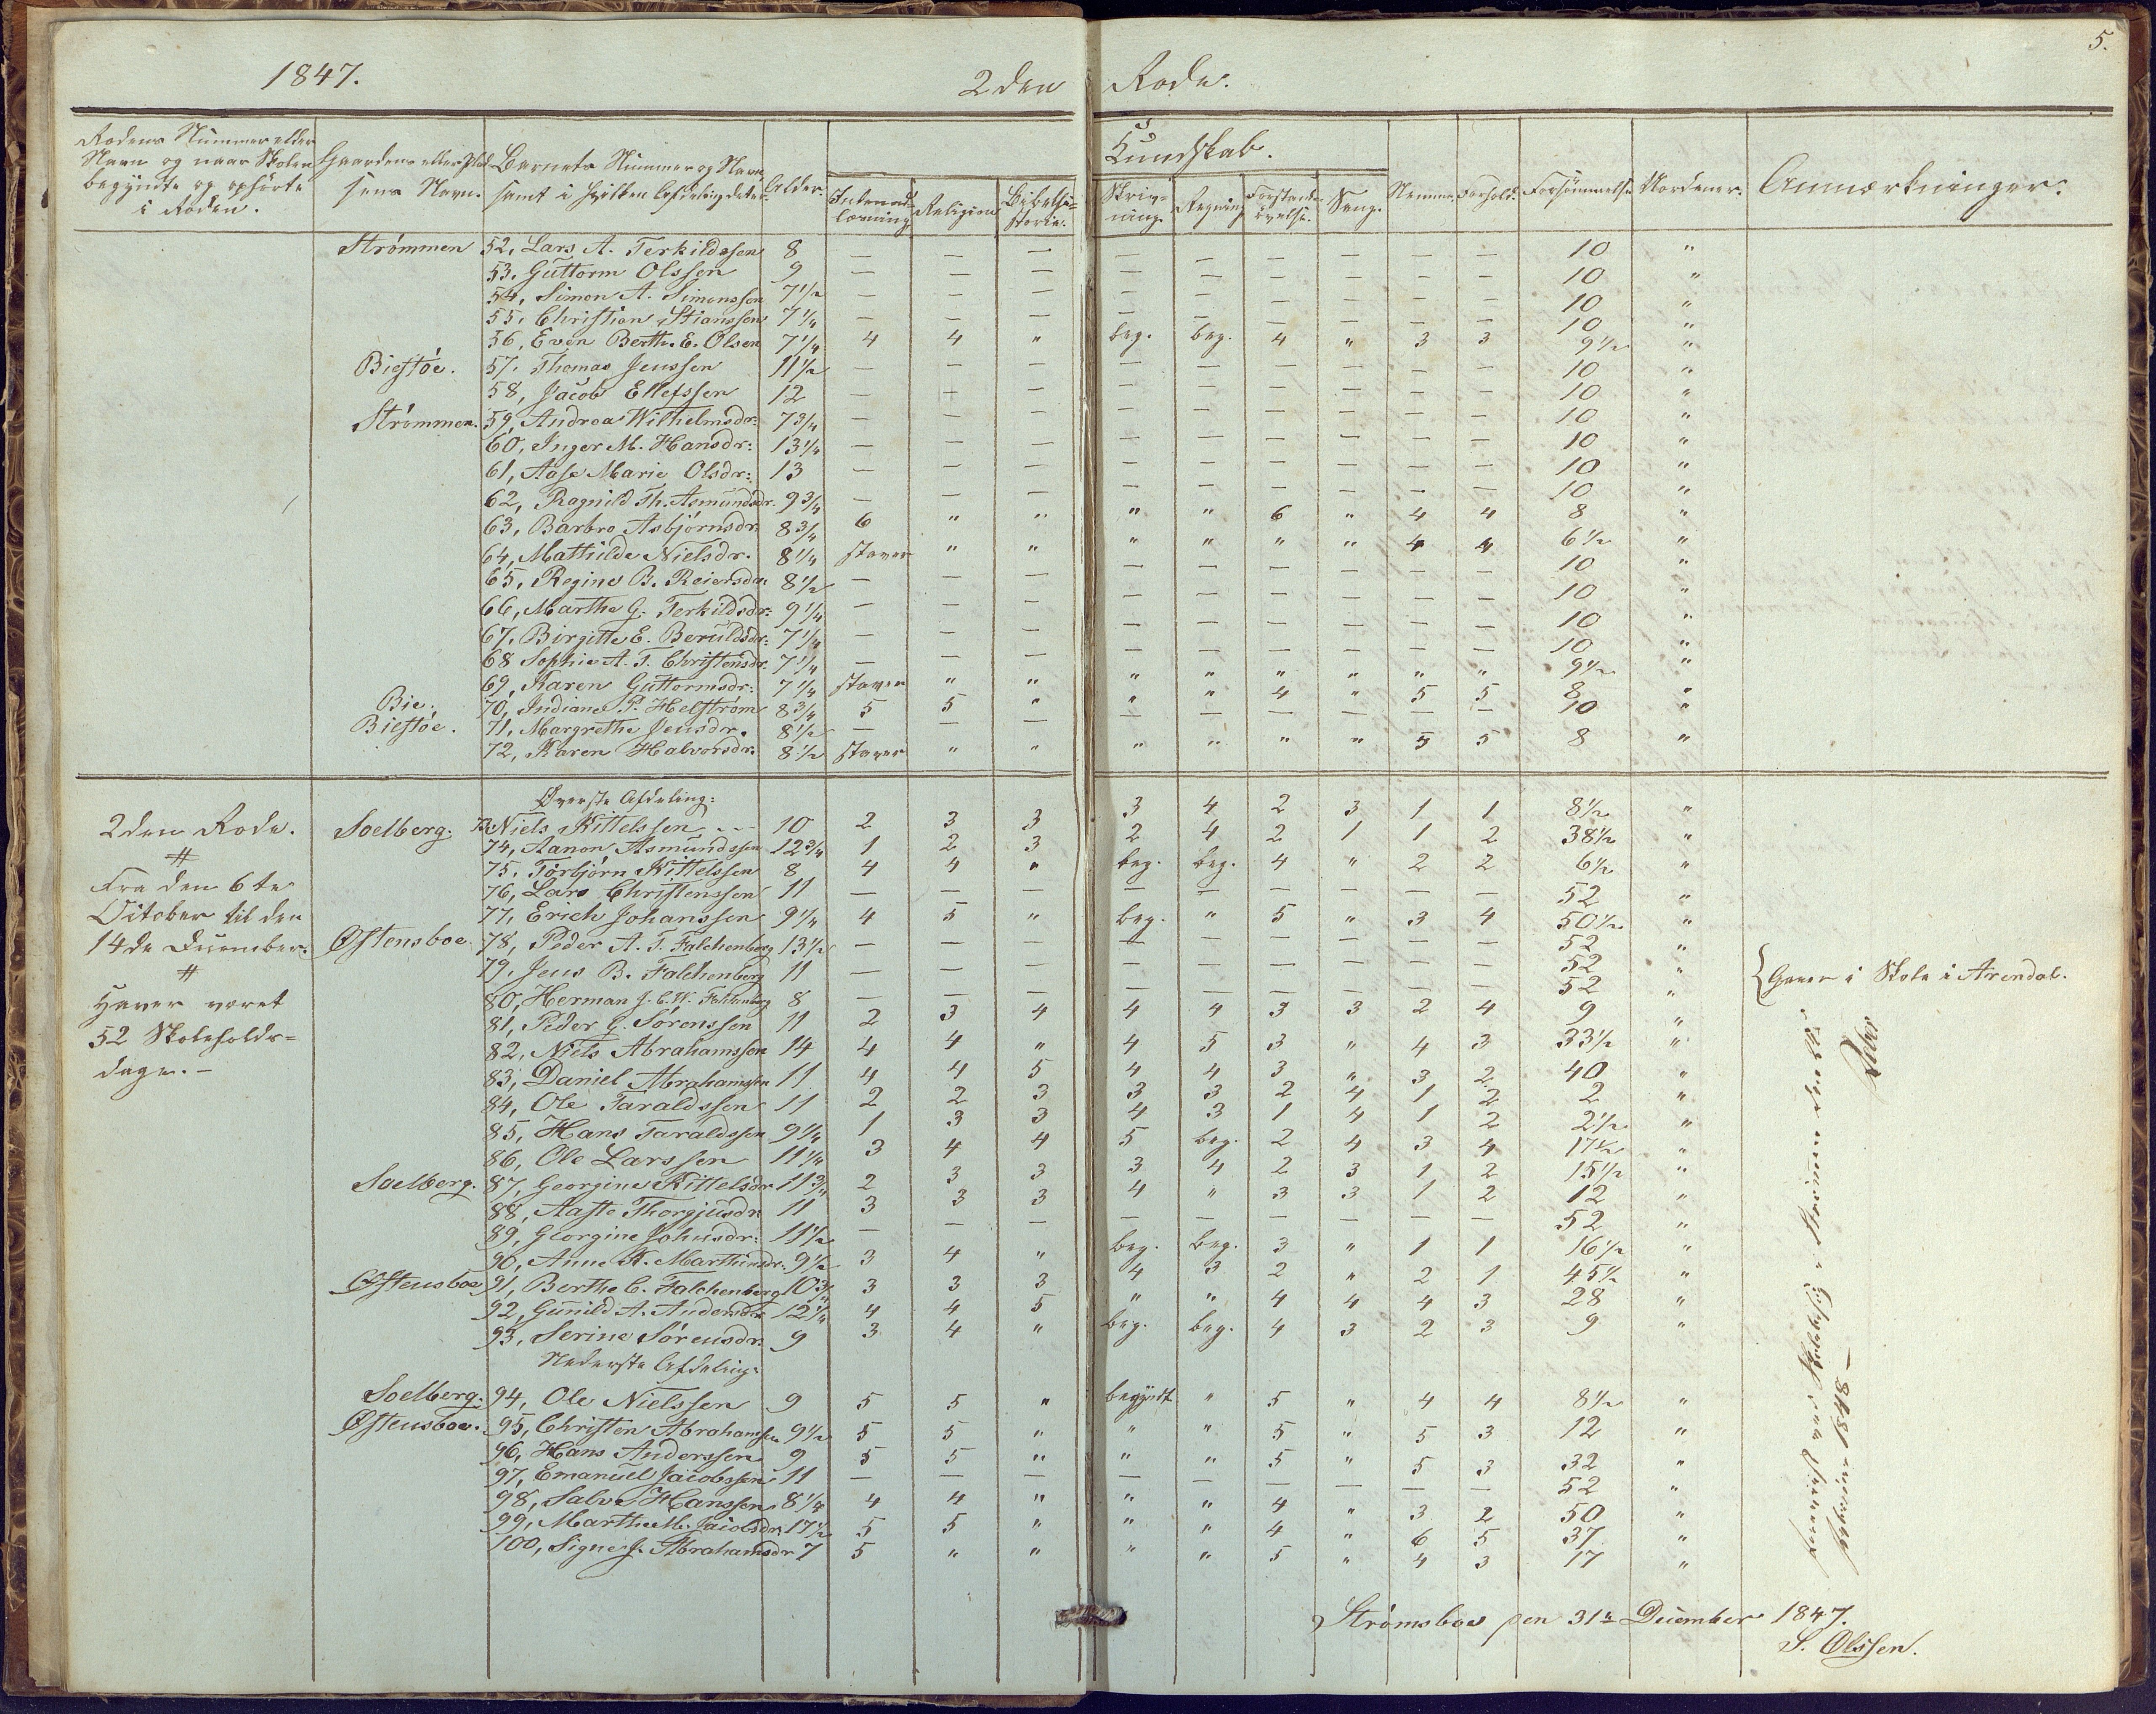 5.
1847. 2den Rode.
Rodens Nummer eller Navn og naar Skolen begyndte og ophørte i Roden. Gaardens eller Pladsens Navn. Barnets Nummer og Navn, samt i hvilken Afdeling det er. Alder. Kundskab. Nemme. Forhold. Forsømmelse. Anmærkninger.
Religion Bibelhistorie. Skrivning. Regning Sang.
Strømmen 52, Lars A. Terkildssen 8 — — — — — — — — — 10 "
53, Guttorm Olssen 9 — — — — — — — — — 10 "
54, Simon A. Simonssen 7½ — — — — — — — — — 10 "
55, Christian Stianssen 7¼ — — — — — — — — — 10 "
56, Even Berth. E. Olsen 7¼ 4 4 " beg. beg. 4 " 3 3 9½ "
Biestøe. 57, Thomas Jenssen 11½ — — — — — — — — — 10 "
58, Jacob Ellefssen 12 — — — — — — — — — 10 "
Strømmen. 59, Andrea Wilhelmsdr: 7¾ — — — — — — — — — 10 "
60, Inger M. Hansdr: 13¼ — — — — — — — — — 10 "
61, Aase Marie Olsdr: 13 — — — — — — — — — 10 "
62, Ragnild Th. Asmundsdr. 9¾ — — — — — — — — — 10 "
63, Barbro Asbjørnsdr: 8¾ 6 " " " " 6 " 4 4 8 "
64, Mathilde Nielsdr. 8¼ staver " " " " " " 4 4 6½ "
65, Regine B. Reiersdr. 8½ — — — — — — — — — 10 "
66, Marthe G. Terkildsdr: 9¼ — — — — — — — — — 10 "
67, Birgitte E. Beruldsdr: 7¼ — — — — — — — — — 10 "
68 Sophie A. T. Christensdr. 7¼ — — — — — — — — — 10 "
69, Karen Guttormsdr: 7¼ staver " " " " " " " " 9½ "
Bie. 70, Indiane P. Helstrøm 8¾ 5 5 " " " 4 " 5 5 8 "
Biestøe. 71, Margrethe Jensdr. 8½ — — — — — — — — — 10 "
72, Karen Halvorsdr: 8½ staver " " " " " " 5 5 8 "
Øverste Afdeling:
2den Rode. Soelberg. 73, Niels Kittelssen 10 2 3 3 3 4 2 3 1 1 8½ "
74, Aanon Asmundssen 12¾ 1 2 3 2 4 2 1 1 2 38½ "
75, Torbjørn Kittelssen 8 4 4 " beg. beg. 4 " 2 2 6½ "
Fra den 6te 76, Lars Christenssen 11 — — — — — — — — — 52 "
October til den 77, Erich Johanssen 9¼ 4 5 " beg. " 5 " 3 4 50½ "
14de December: Østensboe. 78, Peder A. T. Falchenberg 13½ — — — — — — — — — 52 "
79, Jens B. Falchenberg 11 — — — — — — — — — 52 " { Gaaer i Skole i Arendal.
Haver været 80, Herman J. C. W. Falchenberg 8 — — — — — — — — — 52 "
81, Peder G. Sørenssen 11 2 3 4 4 4 3 3 2 4 9 "
52 Skoleholds- 82, Niels Abrahamssen 14 4 4 " 4 5 3 " 4 3 33½ "
dage. — 83, Daniel Abrahamssen 11 4 4 5 4 4 3 " 3 2 40 "
84, Ole Taraldssen 11 2 2 3 3 3 2 4 1 2 2 "
85, Hans Taraldssen 9¼ 1 3 3 4 3 1 4 1 2 2½ "
86, Ole Larssen 11¼ 3 4 4 5 beg. 2 4 3 4 17½ "
Soelberg. 87, Georgine Kittelsdr 11¾ 2 3 3 3 4 2 3 1 2 15½ "
88, Aaste Thorgjusdr 11 3 3 3 4 " 3 3 1 2 12 "
89, Georgine Johnsdr: 11½ — — — — — — — — — 52 "
90, Anne K. Marthinsdr. 9½ 3 4 " beg. beg. 3 " 1 1 16½ "
Østensboe 91, Berthe C. Falchenberg 10¾ 3 3 3 4 3 2 " 2 1 45½ "
92, Gunild A. Andersdr 12¼ 4 4 5 " " 4 4 4 3 28 "
93, Serine Sørensdr: 9 3 4 " beg. beg. 4 3 2 3 9 "
Nederste Afdeling:
Soelberg. 94, Ole Nielssen 9 5 5 " begyndt " 5 " 4 4 8½ "
Østensboe. 95, Christen Abrahamssen 9½ 5 5 " " " 5 " 5 3 12 "
96, Hans Anderssen 9 5 5 " " " 5 " 5 3 32 "
97, Emanuel Jacobssen 11 — — — — — — — — — 52 "
98, Salve Hanssen 8¼ 4 4 " " " 4 " 3 2 50 "
99, Marthe M. Jacobsdr. 17½ 5 5 " " " 4 " 6 5 37 "
100, Signe J. Abrahamsdr 7 5 " " " " 5 " 4 3 17 "
Strømsboe den 31te December 1847.
S. Olssen.
ved Skolebesøg i Strømmen den
Februar 1848 —